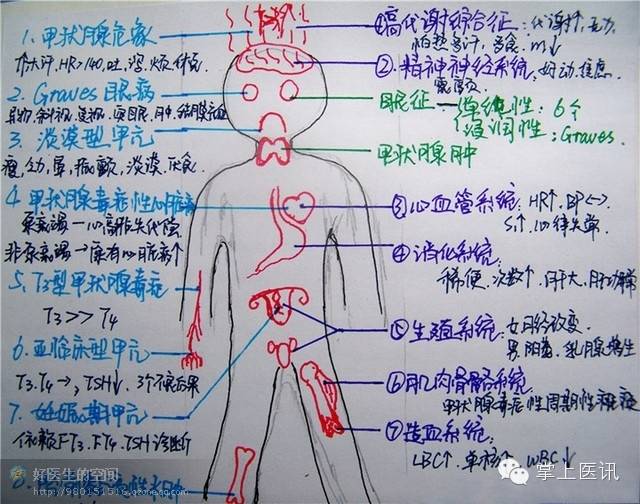 1. 甲状腺危象
大汗、HR>140、吐、泻、烦、
2. Graves 眼病
3. 淡漠型甲亢
瘦、幼、屏、振颤、淡漠、厌食
4 甲状腺毒症性心脏病
泵衰竭—心高排失代偿
非泵衰竭→原有心脏病↑
5、T3型甲状腺毒症
T3>>T4
6. 亚临床型甲亢
T3.T4→, TSH↓. 3个不良后果
7. 妊娠期甲亢
依赖FT3. FT4. TSH诊断
①高代谢综合征: 代谢↑, 乏力,
怕热多汗, 多食. m↓
②. 精神神经系统: 好动, 焦虑.
震颤
眼征—单纯性: 6个
浸润性: Graves.
甲状腺肿
③心血管系统: HR↑. BP<->
S₁↑. 心律失常
④消化系统:
稀便. 次数↑. 肝大, 肝功能异常
⑤生殖系统: 女月经改变.
男阳萎, 乳腺增生
⑥肌肉骨骼系统
甲状腺毒症性周期性瘫痪
⑦造血系统:
LBC↑. 单核↑. WBC↓
好医生的空间
http://980151516.qzone.qq.com
掌上医讯